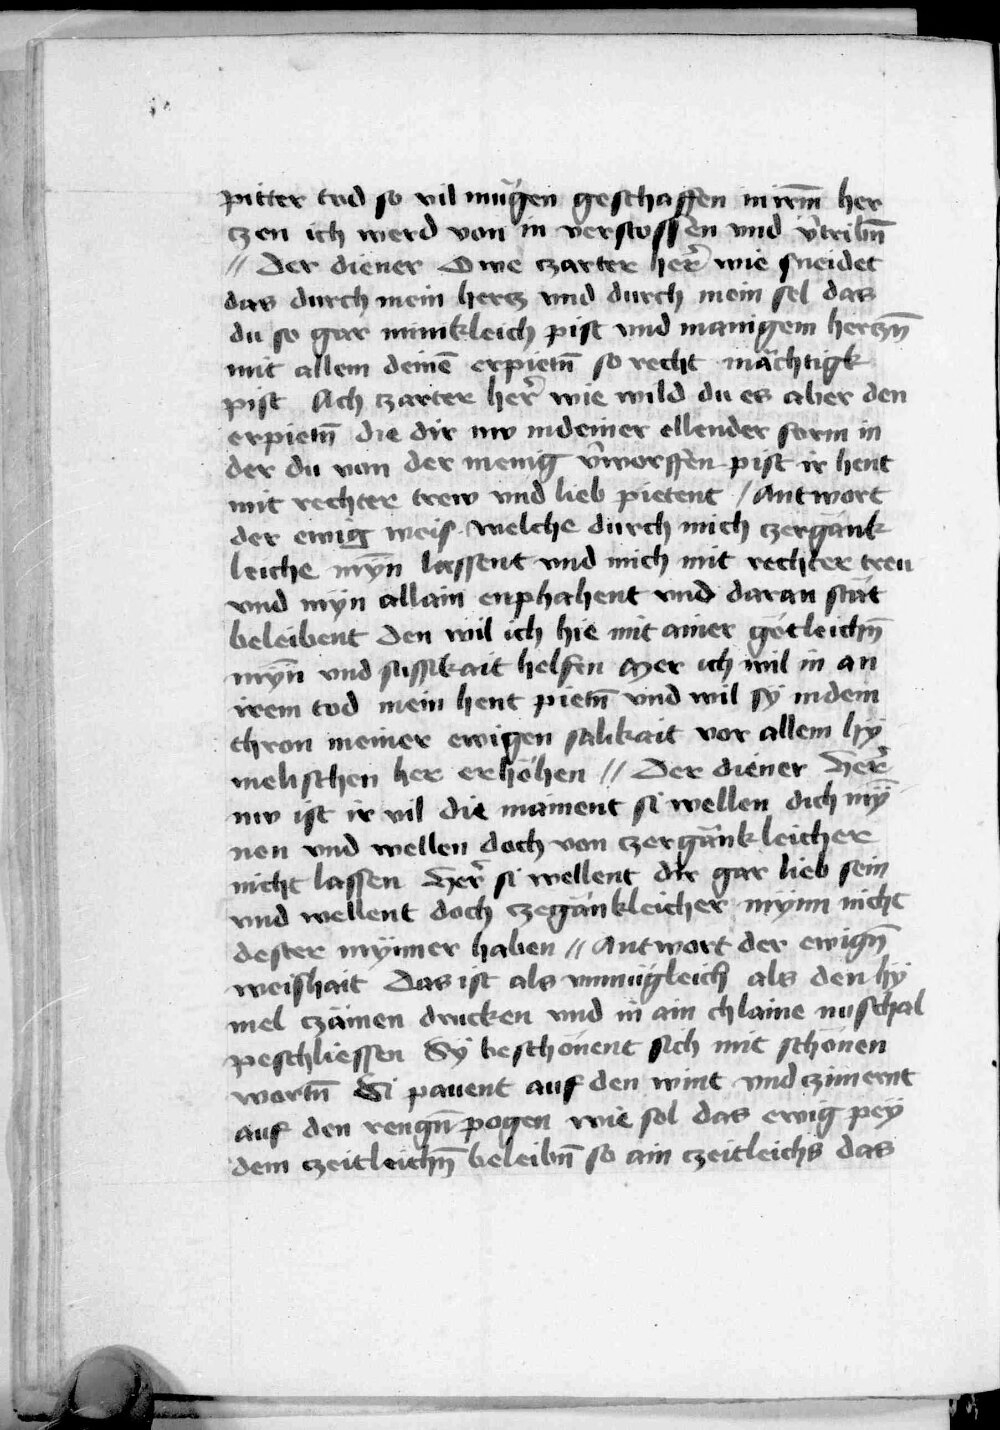 pitter tod so vil mügen geschaffen in irm̄ her
czen ich werd von in verstossen vnd v̄tribn̄
// Der diener O we czarter her̄ wie sneidet
das durch mein hercz vnd durch mein sel das
du so gar minikleich pist vnd manigem herczn̄
mit allem deinē erpietn̄ so recht mächtigk
pist Ach czarter her̄ wie wild du es aber den
erpietn̄ die dir nw in deiner ellender form in
der du von der menig v̄worffen pist ir hent
mit rechter trew vnd lieb pietent / Antwort
der ewig weis welche durch mich czergänk
leiche myn̄ lassent vnd mich mit rechter treu
vnd myn allain enphahent vnd daran stät
beleibent den wil ich hie mit ainer götleichn̄
myn̄ vnd süssikait helfen Mer ich wil in an
irem tod mein hent pietn̄ vnd wil sy in dem
thron meiner ewigen sälikait vor allem hy
melischen her erhöhen // Der diener Her̄
nw ist ir vil die mainent si wellen dich mȳ
nen vnd wellen doch von czergänkleicher
nicht lassen Her̄ si wellent dir gar lieb sein
vnd wellent doch czegänkleicher mynn nicht
dester mynner haben // Antwort der ewign̄
weishait Das ist als vnmügleich als den hy
mel czämen drucken vnd in ain chlaine nuschal
peschliessen Sy beschönent sich mit schönen
wortn̄ Si pauent auf den wint vnd czimernt
auf den rengn̄ pogen wie sol das ewig pey
dem czeitleichn̄ beleibn̄ so ain czeitleichs das